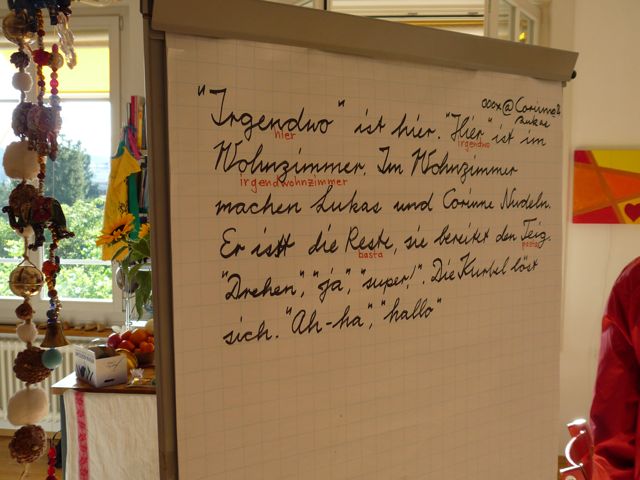 "Irgendwo" ist hier. "Hier" ist im
xxx@Corinne&
Lukas
hier
irgendwo
Wohnzimmer. Im Wohnzimmer
irgendwohnzimmer
machen Lukas und Corinne Nudeln.
Er isst die Reste, sie bereitet den Teig.
basta
pasta
"Drehen", "ja", "super!". Die Kurbel löst
sich. "Ah-ha", "hallo"